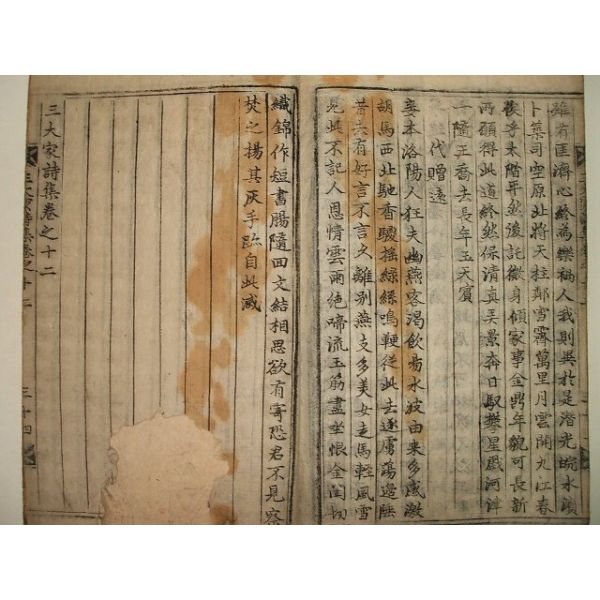 雖有匡濟心終為樂禍人我則異於是潛光皖水濱
卜築司空原北將天柱鄰雪霽萬里月雲開九江春
俟乎太階平然後託微身傾家事金鼎年貌可長新
所願得此道終然保清真弄景奔日馭攀星戲河津
一隨王喬去長年玉天賓
代贈遠
妾本洛陽人狂夫幽燕客渴飲易水波由来多感激
胡馬西北馳香鬃搖綠絲鳴鞭從此去逐虜蕩邊陲
昔去有好言不言久離別燕支多美女走馬輕風雪
見此不記人恩情雲雨絕啼流玉筯盡坐恨金閨切
織錦作短書腸隨回文結相思欲有寄恐君不見察
焚之揚其灰手跡自此滅
三大家詩集卷之十二
三大家詩集卷之十二
三十四